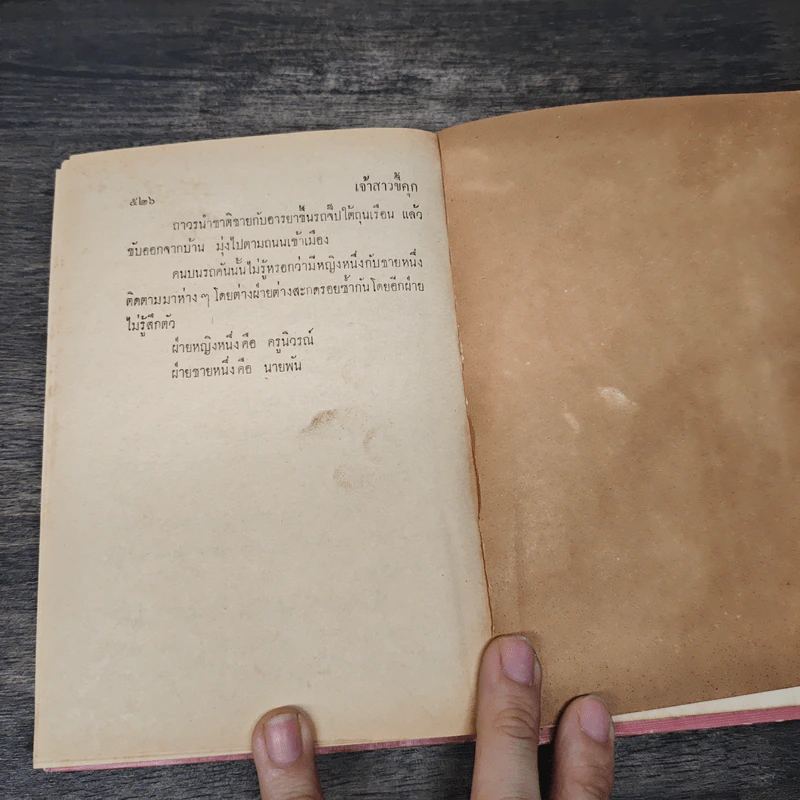 ๕๒๖
เจ้าสาวขี้คุก
ถาวรนำชาติชายกับอารยาขึ้นรถจี๊ปใต้ถุนเรือน แล้ว
ขับออกจากบ้าน มุ่งไปตามถนนเข้าเมือง
คนบนรถคันนั้นไม่รู้หรอกว่ามีหญิงหนึ่งกับชายหนึ่ง
ติดตามมาห่าง ๆ โดยต่างฝ่ายต่างสะกดรอยซ้ำกันโดยอีกฝ่าย
ไม่รู้สึกตัว
ฝ่ายหญิงหนึ่งคือ ครูนิวรณ์
ฝ่ายชายหนึ่งคือ นายพัน